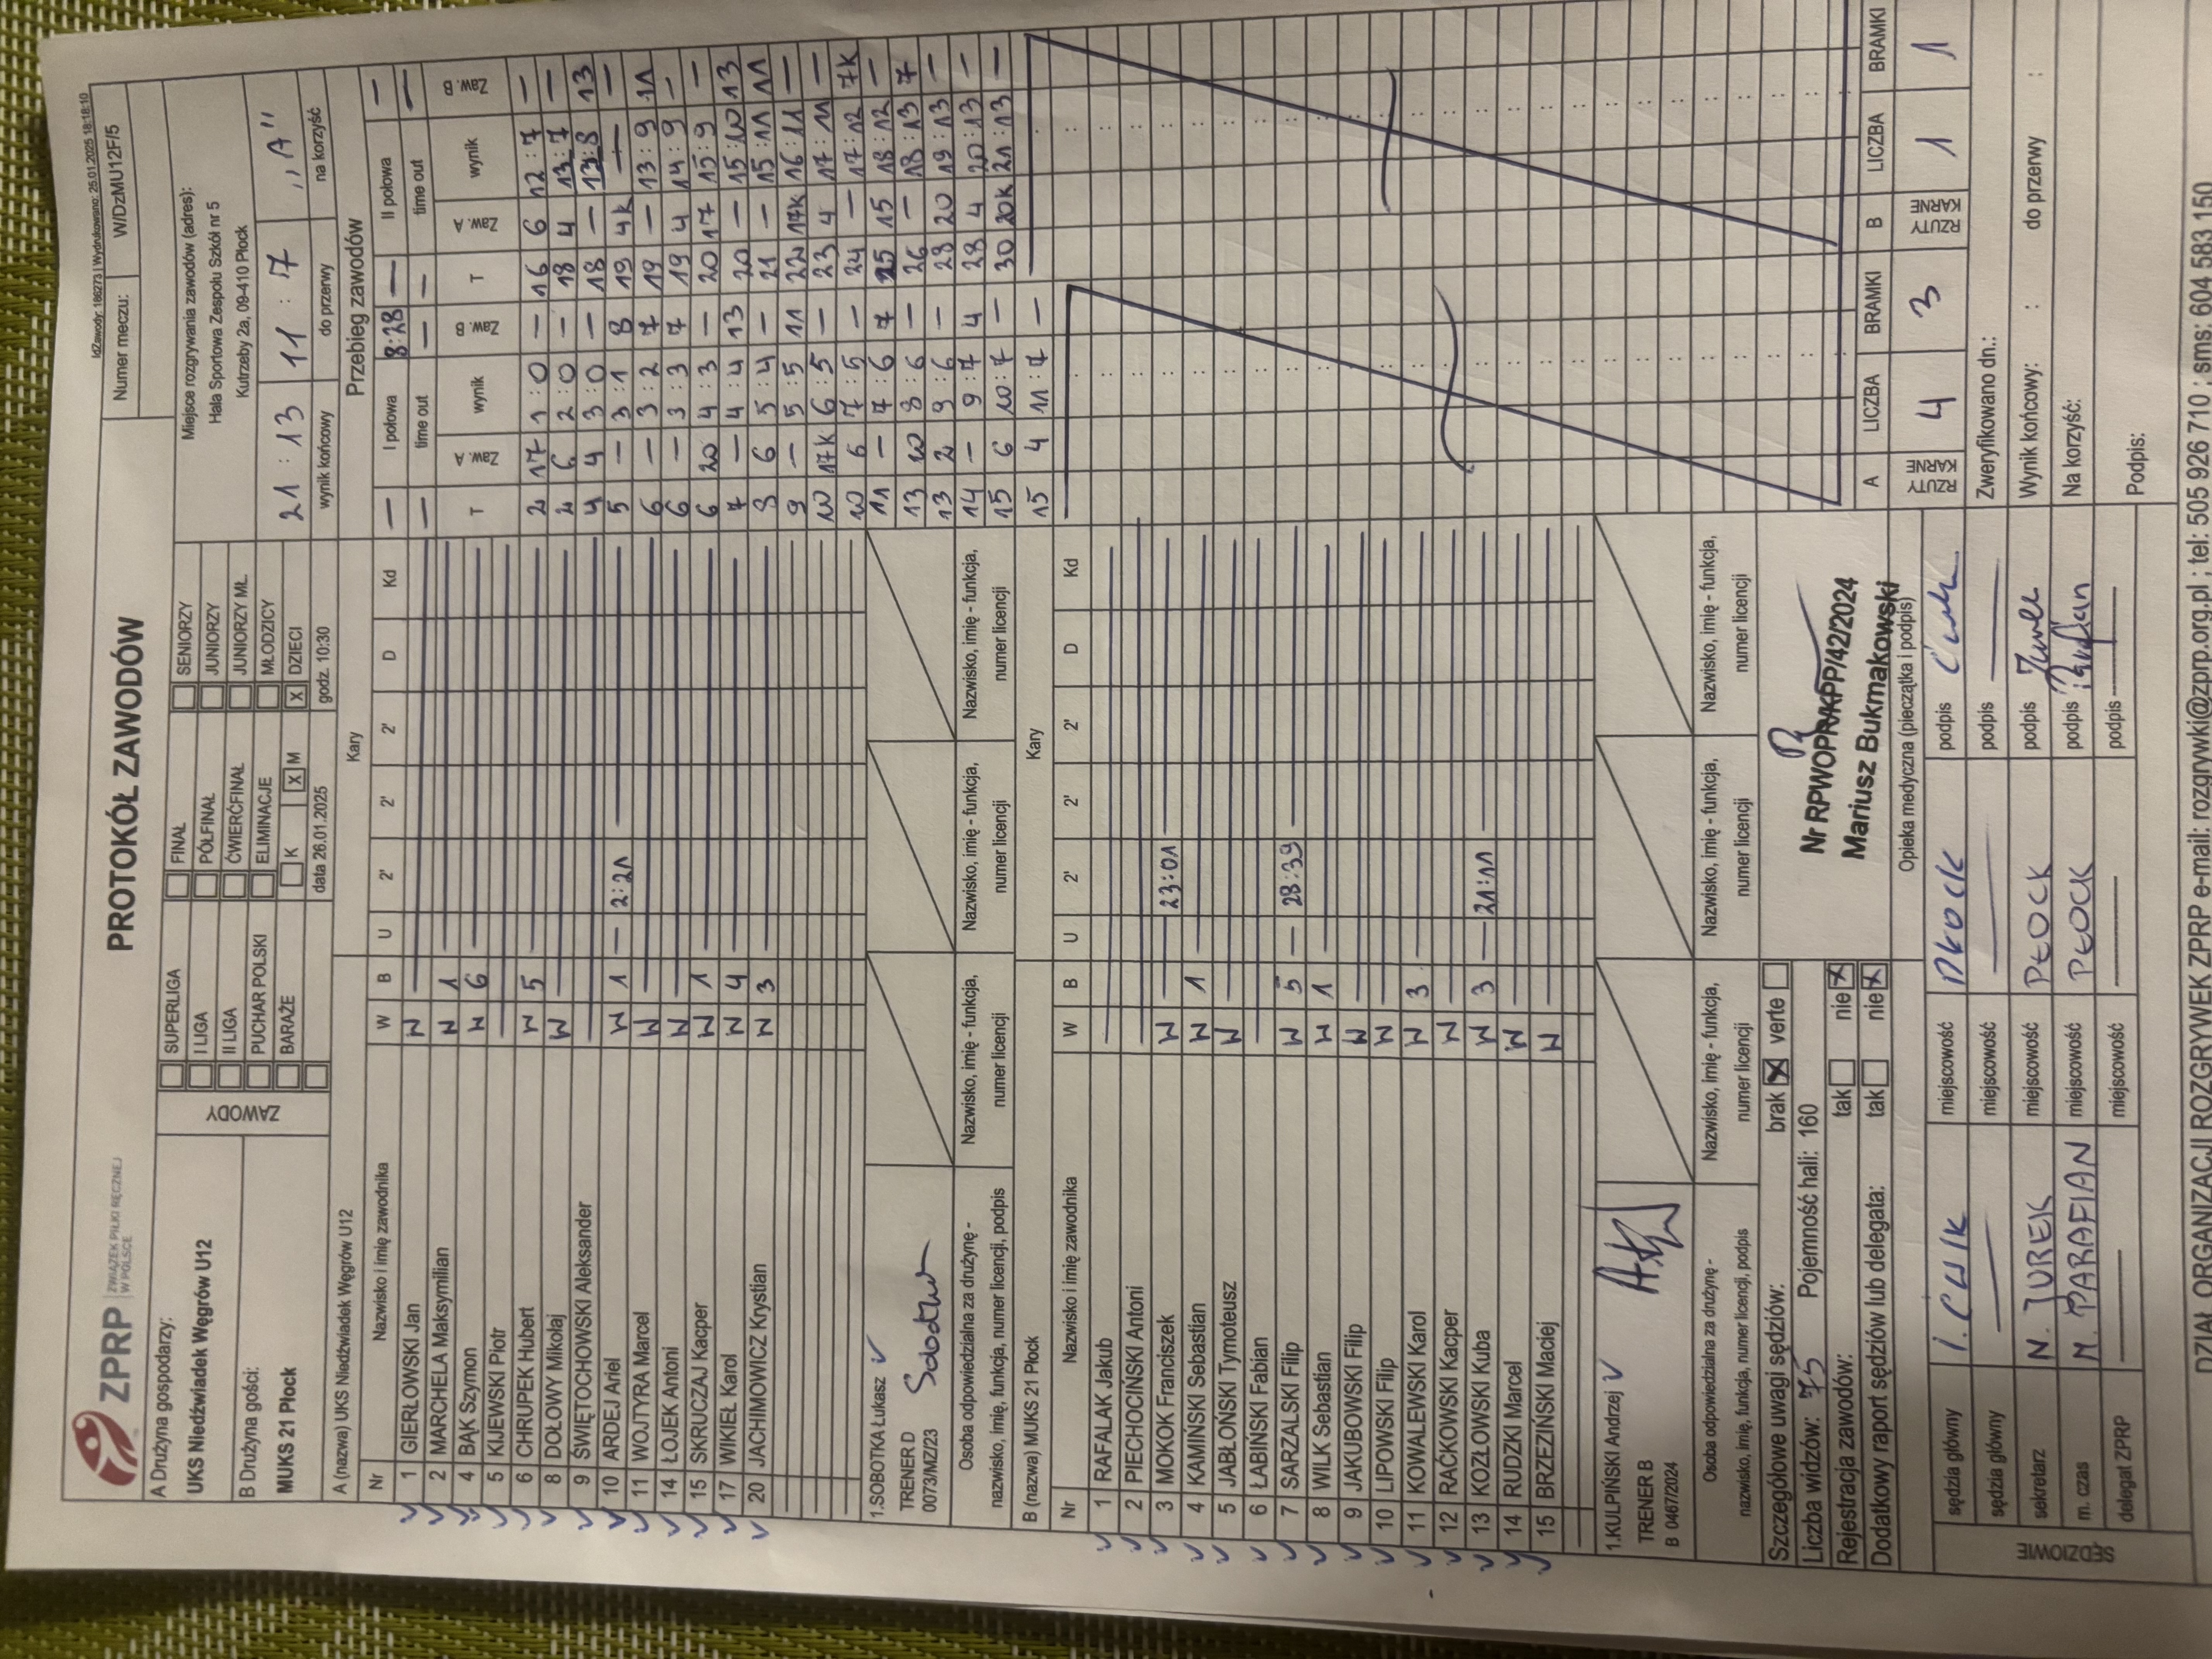 IdZawody: 186273 | Wydrukowano: 25.01.2025 18:18:10
ZPRP ZWIĄZEK PIŁKI RĘCZNEJ W POLSCE
PROTOKÓŁ ZAWODÓW
Numer meczu: W/DzMU12F/5
A Drużyna gospodarzy:
UKS Niedźwiadek Węgrów U12
B Drużyna gości:
MUKS 21 Płock
ZAWODY
SUPERLIGA
I LIGA
II LIGA
PUCHAR POLSKI
BARAŻE
FINAŁ
PÓŁFINAŁ
ĆWIERĆFINAŁ
ELIMINACJE
K X M
SENIORZY
JUNIORZY
JUNIORZY MŁ.
MŁODZICY
X DZIECI
data 26.01.2025 godz. 10:30
Miejsce rozgrywania zawodów (adres):
Hala Sportowa Zespołu Szkół nr 5
Kutrzeby 2a, 09-410 Płock
21 : 13 11 : 7 „A"
wynik końcowy do przerwy na korzyść
A (nazwa) UKS Niedźwiadek Węgrów U12 Kary
Nr Nazwisko i imię zawodnika W B U 2' 2' 2' D Kd
1 GIERŁOWSKI Jan W —
2 MARCHELA Maksymilian W 1 —
4 BĄK Szymon W 6 —
5 KIJEWSKI Piotr —
6 CHRUPEK Hubert W 5 —
8 DOŁOWY Mikołaj W —
9 ŚWIĘTOCHOWSKI Aleksander —
10 ARDEJ Ariel W 1 — 2:21 —
11 WOJTYRA Marcel W —
14 ŁOJEK Antoni W —
15 SKRUCZAJ Kacper W 1 —
17 WIKIEŁ Karol W 4 —
20 JACHIMOWICZ Krystian W 3 —
1.SOBOTKA Łukasz
TRENER D
0073/MZ/23
Osoba odpowiedzialna za drużynę - nazwisko, imię, funkcja, numer licencji, podpis
Nazwisko, imię - funkcja, numer licencji
Nazwisko, imię - funkcja, numer licencji
Nazwisko, imię - funkcja, numer licencji
B (nazwa) MUKS 21 Płock Kary
Nr Nazwisko i imię zawodnika W B U 2' 2' 2' D Kd
1 RAFALAK Jakub —
2 PIECHOCIŃSKI Antoni —
3 MOKOK Franciszek W — 23:01 —
4 KAMIŃSKI Sebastian W 1 —
5 JABŁOŃSKI Tymoteusz W —
6 ŁABIŃSKI Fabian —
7 SARZALSKI Filip W 5 — 28:39 —
8 WILK Sebastian W 1 —
9 JAKUBOWSKI Filip W —
10 LIPOWSKI Filip W —
11 KOWALEWSKI Karol W 3 —
12 RAĆKOWSKI Kacper W —
13 KOZŁOWSKI Kuba W 3 — 21:11 —
14 RUDZKI Marcel W —
15 BRZEZIŃSKI Maciej W —
1.KULPIŃSKI Andrzej
TRENER B
B 0467/2024
Osoba odpowiedzialna za drużynę - nazwisko, imię, funkcja, numer licencji, podpis
Nazwisko, imię - funkcja, numer licencji
Nazwisko, imię - funkcja, numer licencji
Nazwisko, imię - funkcja, numer licencji
Przebieg zawodów
— I połowa 8:28 — II połowa —
— time out — — time out —
T Zaw. A wynik Zaw. B T Zaw. A wynik Zaw. B
2 17 1 : 0 — 16 6 12 : 7 —
2 6 2 : 0 — 18 4 13 : 7 —
4 4 3 : 0 — 18 — 13 : 8 13
5 — 3 : 1 8 19 4K — —
6 — 3 : 2 7 19 — 13 : 9 11
6 — 3 : 3 7 19 4 14 : 9 —
6 20 4 : 3 — 20 17 15 : 9 —
7 — 4 : 4 13 20 — 15 : 10 13
8 6 5 : 4 — 21 — 15 : 11 11
9 — 5 : 5 11 22 17K 16 : 11 —
10 17K 6 : 5 — 23 4 17 : 11 —
10 6 7 : 5 — 24 — 17 : 12 7K
11 — 7 : 6 7 25 15 18 : 12 —
13 20 8 : 6 — 26 — 18 : 13 7
13 2 9 : 6 — 28 20 19 : 13 —
14 — 9 : 7 4 28 4 20 : 13 —
15 6 10 : 7 — 30 20K 21 : 13 —
15 4 11 : 7 —
A LICZBA BRAMKI B LICZBA BRAMKI
RZUTY KARNE 4 3 RZUTY KARNE 1 1
Szczegółowe uwagi sędziów: brak X verte
Liczba widzów: 75 Pojemność hali: 160
Rejestracja zawodów: tak nie X
Dodatkowy raport sędziów lub delegata: tak nie X
Nr RPWOPR/KPP/42/2024
Mariusz Bukmakowski
Opieka medyczna (pieczątka i podpis)
SĘDZIOWIE
sędzia główny I. miejscowość podpis
sędzia główny — miejscowość — podpis —
sekretarz N. JUREK miejscowość PŁOCK podpis Jurek
m. czas M. PARAFIAN miejscowość PŁOCK podpis Parafian
delegat ZPRP — miejscowość — podpis —
Zweryfikowano dn.:
Wynik końcowy: : do przerwy :
Na korzyść:
Podpis:
DZIAŁ ORGANIZACJI ROZGRYWEK ZPRP e-mail: rozgrywki@zprp.org.pl ; tel: 505 926 710 ; sms: 604 583 150